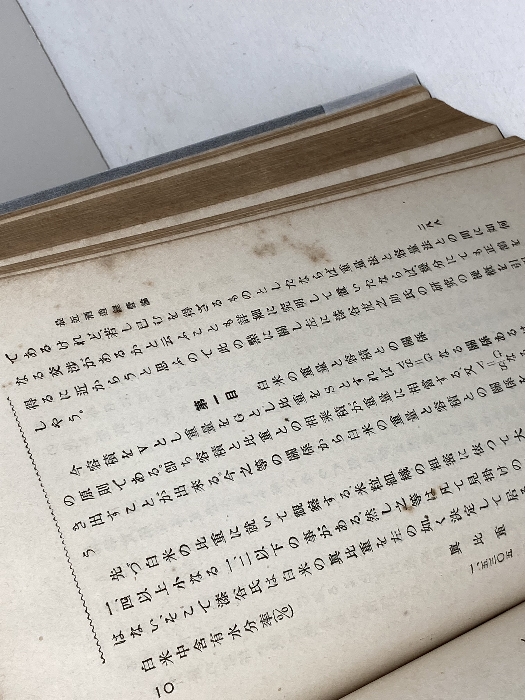 二八八
であるけれど若し已むを得ざるものとしたならば重量法と容量法との間に如何
なる交渉があるかと云ふことを詳細に究明して置いたならば幾分にても正鵠を
得るに近からうと思ふので此の點に關し左に
氏の研究の
を引用
しやう。
第一目　白米の重量と容積との關係
今容積をVとし重量をGとし比重をSとすればVS=Gなる關係ある
の原則である。即ち容積と比重との相乘積が重量に相當する。又V=G/S
き出すことが出來る。今之等の關係から白米の重量と容積との關係を
う
先づ白米の比重に就いて觀察する米粒組織の粗密に從つて大
一、四以上
なる一、二以下の事がある。然し之等は
て見掛けの
はない。そこで
氏は白米の眞比重を左の如く決定して居る
白米中含有水分率(%)
眞比重
一〇